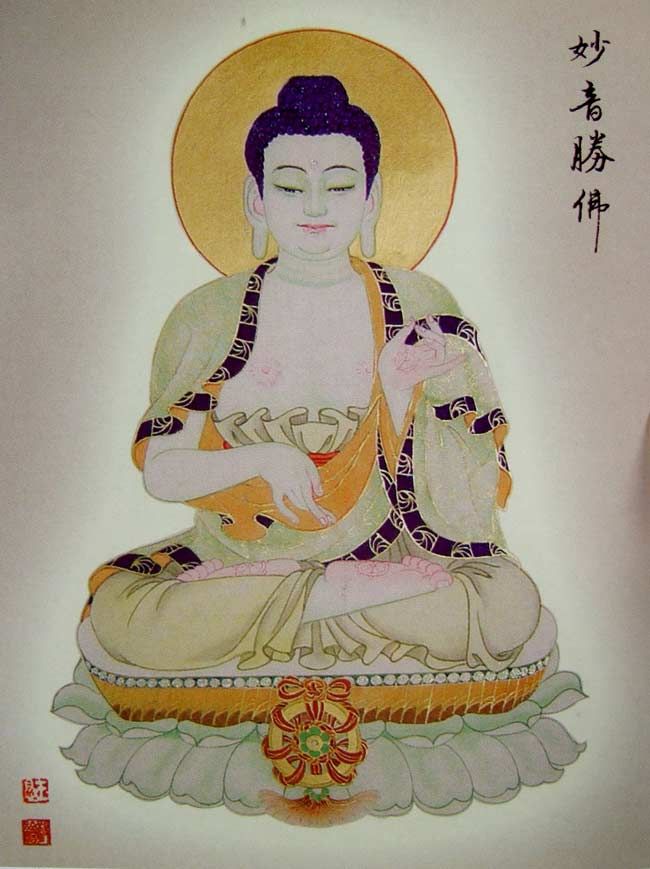 妙音勝佛